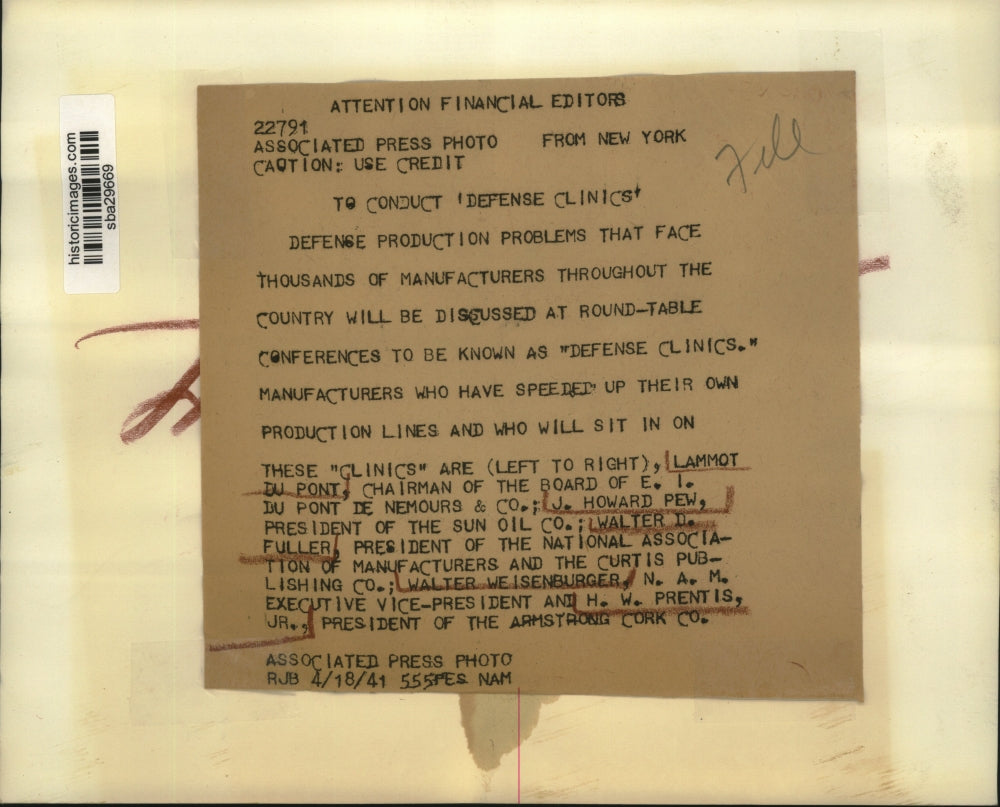 historicimages.com
sba29669
ATTENTION FINANCIAL EDITORS
22791
ASSOCIATED PRESS PHOTO FROM NEW YORK
CAUTION: USE CREDIT
File
TO CONDUCT 'DEFENSE CLINICS'
DEFENSE PRODUCTION PROBLEMS THAT FACE
THOUSANDS OF MANUFACTURERS THROUGHOUT THE
COUNTRY WILL BE DISCUSSED AT ROUND-TABLE
CONFERENCES TO BE KNOWN AS "DEFENSE CLINICS."
MANUFACTURERS WHO HAVE SPEEDED UP THEIR OWN
PRODUCTION LINES AND WHO WILL SIT IN ON
THESE "CLINICS" ARE (LEFT TO RIGHT), LAMMOT
DU PONT, CHAIRMAN OF THE BOARD OF E. I.
DU PONT DE NEMOURS & CO.; J. HOWARD PEW,
PRESIDENT OF THE SUN OIL CO.; WALTER D.
FULLER, PRESIDENT OF THE NATIONAL ASSOCIA-
TION OF MANUFACTURERS AND THE CURTIS PUB-
LISHING CO.; WALTER WEISENBURGER, N. A. M.
EXECUTIVE VICE-PRESIDENT AND H. W. PRENTIS,
JR., PRESIDENT OF THE ARMSTRONG CORK CO.
ASSOCIATED PRESS PHOTO
RJB 4/18/41 555PES NAM